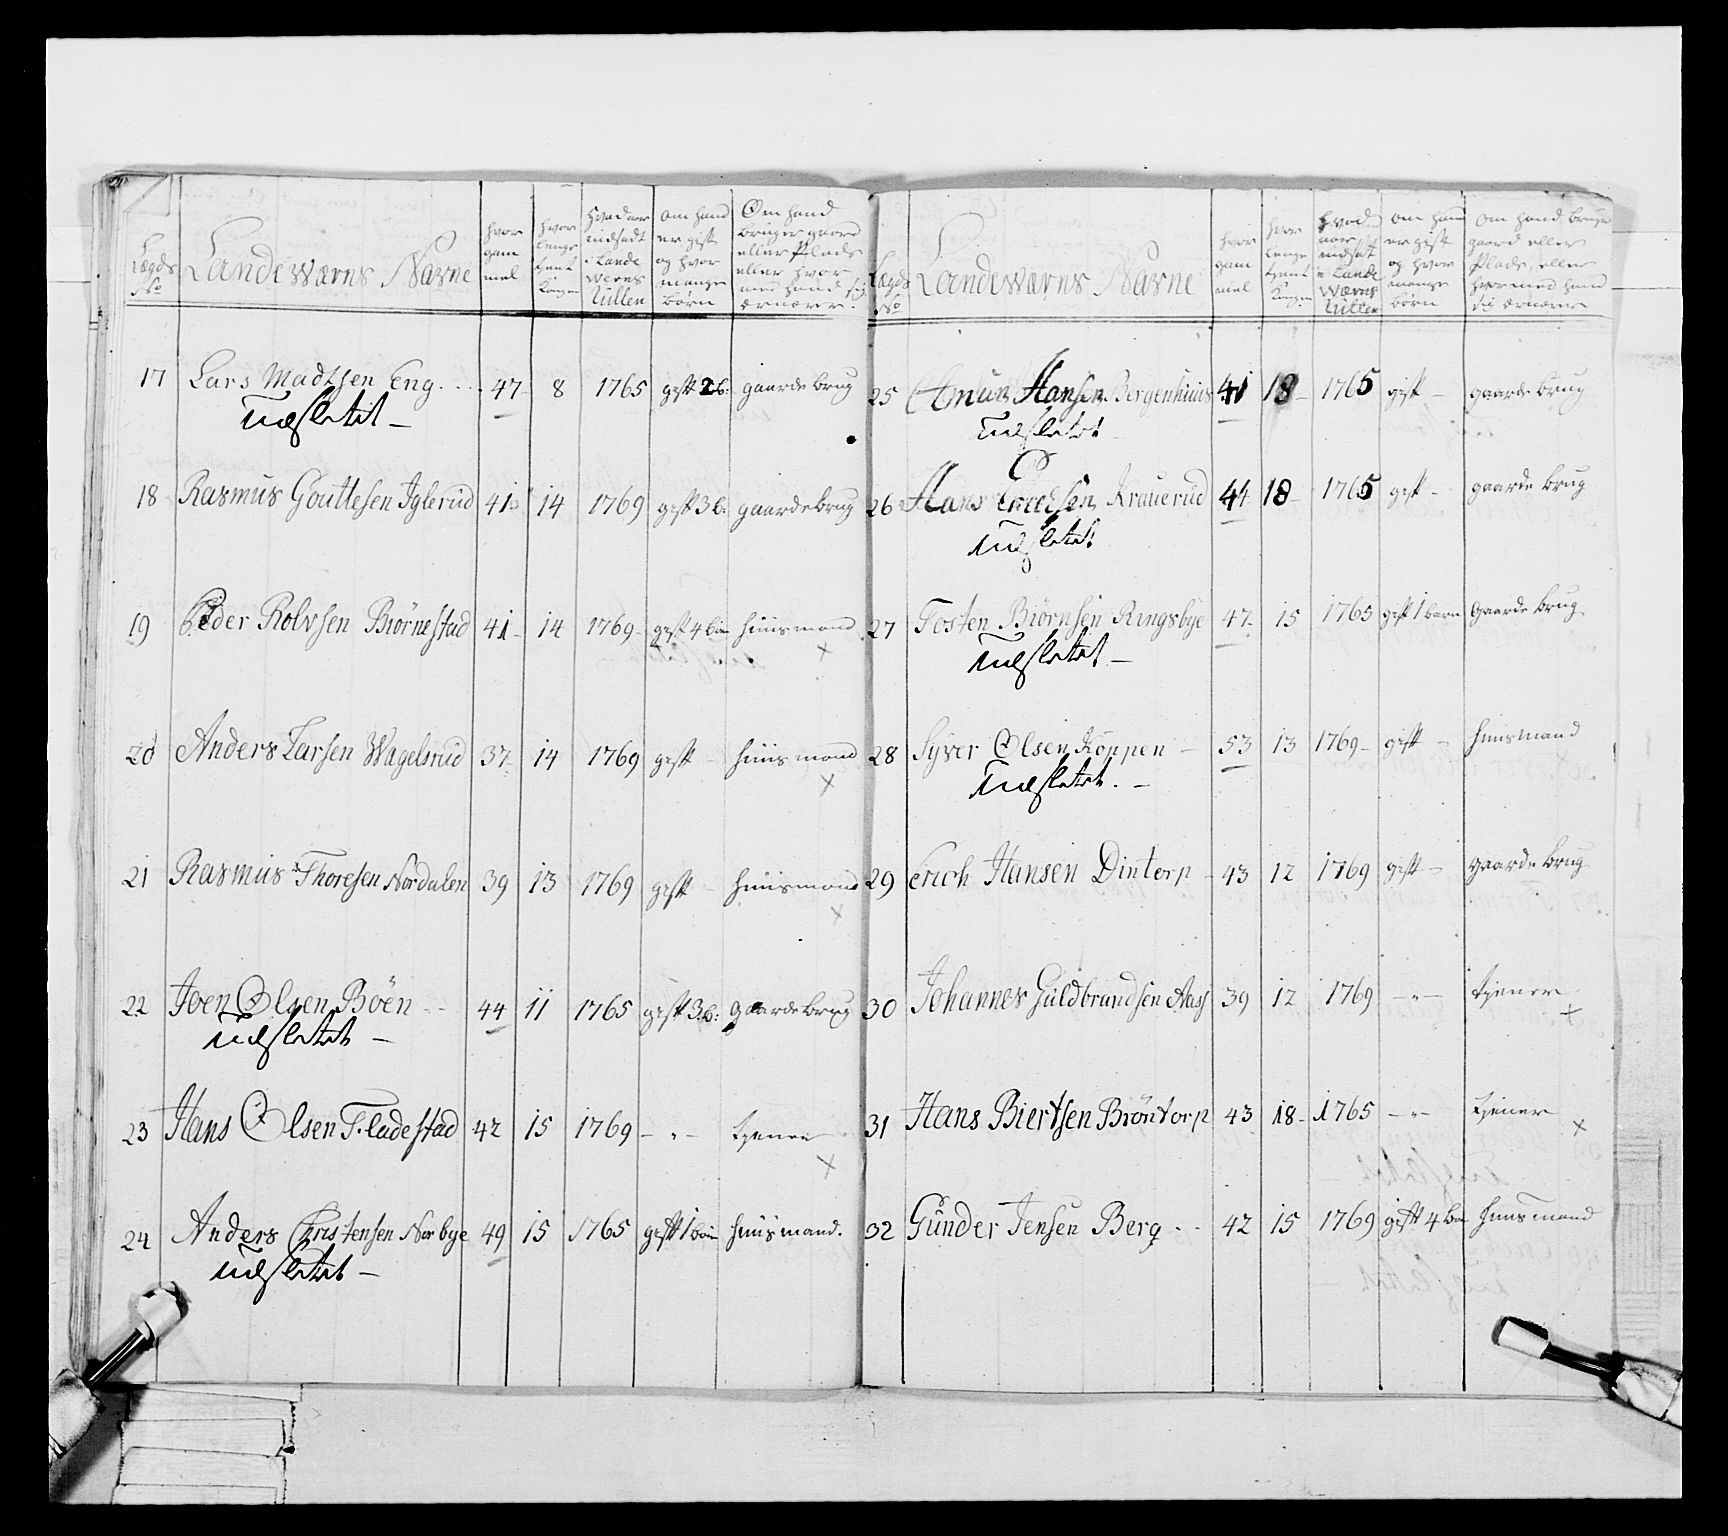 Lægds No | Landeværns Navne | hvor gammel | hvor lenge tjent Kongen | Hvad aar indsadt i Landeværns Rullen | om hand er gift og hvor mange børn | Om hand bruger gaard eller Plads eller hvor med hand sig ærnærer.
17 Lars Madtsen Eng 47 8 1765 gift 2 b: gaarde brug
udslettet
18 Rasmus Gouttesen Iglerud 41 14 1769 gift 3 b: gaarde brug
19 Peder Rolvsen Biørnestad 41 14 1769 gift 4 børn huusmand ×
20 Anders Larsen Wagelsrud 37 14 1769 gift huusmand ×
21 Rasmus Thoresen Nordalen 39 13 1769 gift huusmand ×
22 Joen Olsen Böen 44 11 1765 gift 3 b: gaarde brug
udslettet
23 Hans Olsen Fladestad 42 15 1769 - " - tjener ×
24 Anders Christensen Norbye 49 15 1765 gift 1 barn huusmand.
udslettet
Lægds No | Landeværns Navne | hvor gammel | hvor lenge tjent Kongen | hvad aar indsat i Landeværns Rullen | om hand er gift og hvor mange børn | om hand bruger gaard eller Plads, eller hvormed hand sig ærnærer
25 Amun Hansen Bergenhuus 41 18 1765 gift gaarde brug
udslettet
26 Hans Krauerud 44 18 1765 gift gaarde brug
udslettet
27 Tosten Biörnsen Ringsbye 47 15 1765 gift 1 barn Gaarde brug
udslettet
28 Syver Olsen Koppen 53 13 1769 gift huusmand
udslettet
29 Erich Hansen Dintorp 43 12 1769 gift gaarde brug
30 Johannes Guldbrandsen Aass 39 12 1769 - " - tjener ×
31 Hans Biertsen Bröntorp 43 18 1765 - " - tjener ×
32 Gunder Jensen Berg 42 15 1769 gift 4 børn huusmand